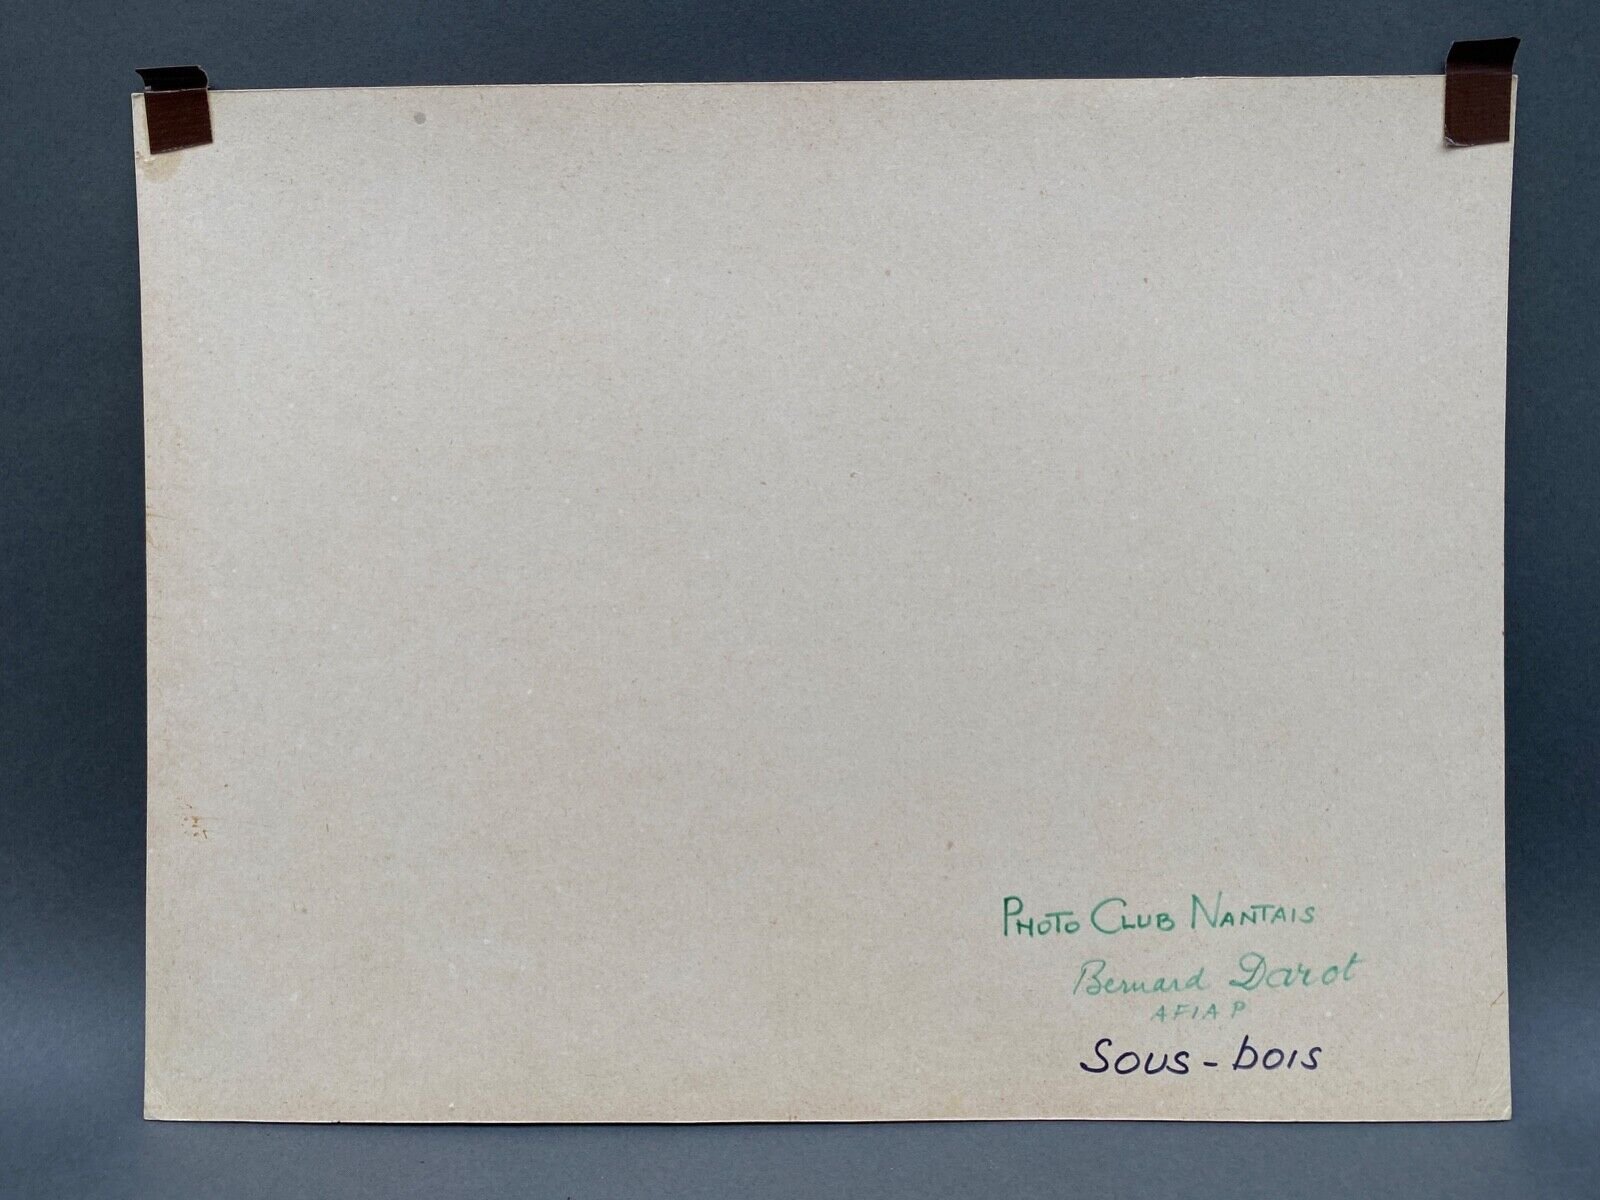 Photo Club Nantais
Bernard Darot
AFIAP
Sous-bois